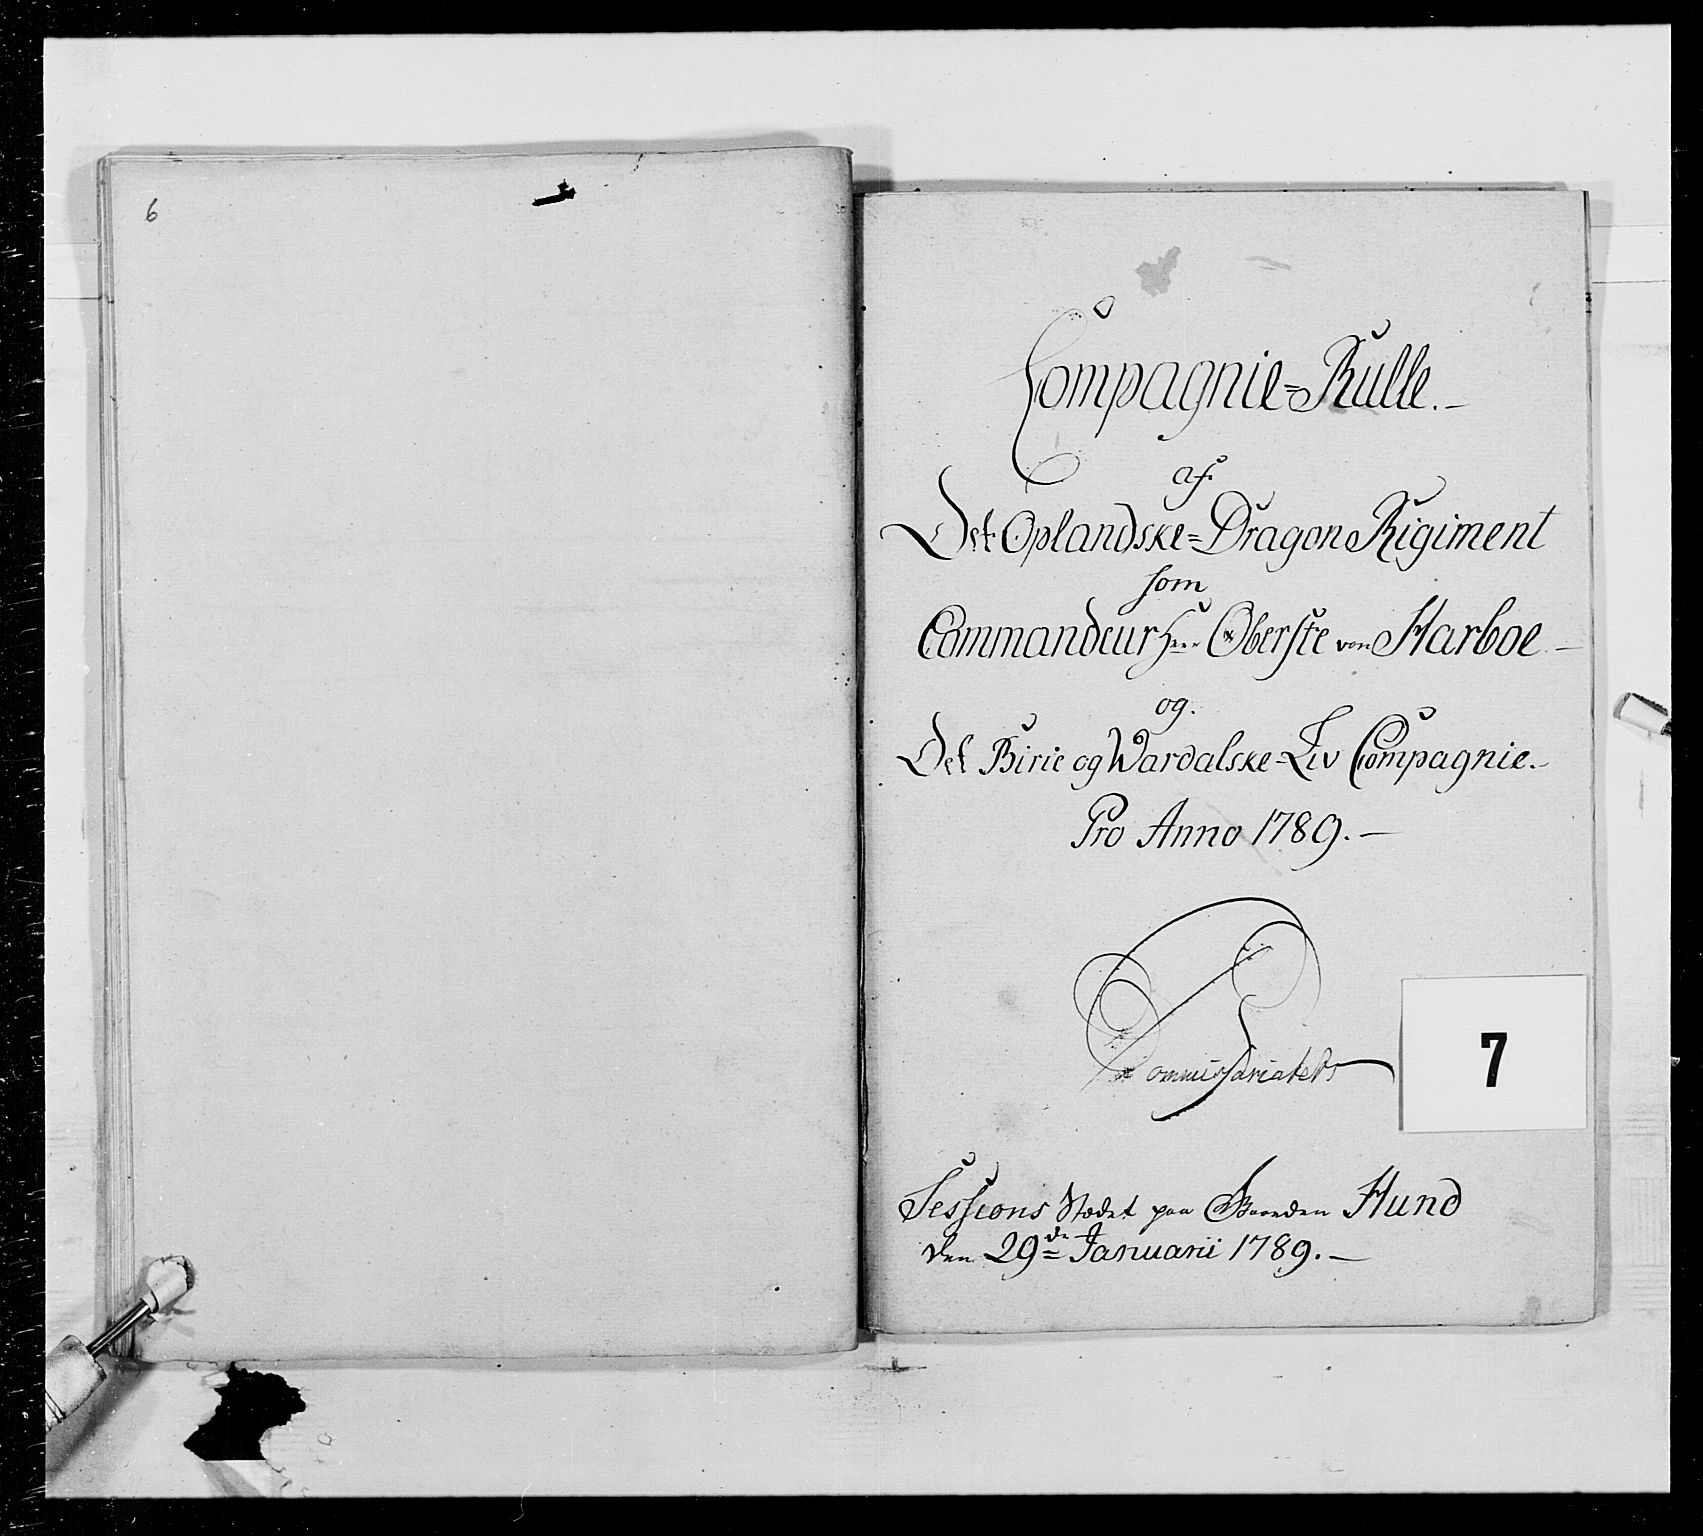 6
Compagnie=Rulle.—
af.
Det Oplandske=Dragon Rigiment
som
Commandeur Herr Oberste von Harboe.—
og.
Det Birie og Wardalske=Liv Compagnie.—
Pro Anno 1789.—
Commissariatets
7
Sessions Stædet paa Gaarden Hund
den 29de Januarii 1789.—